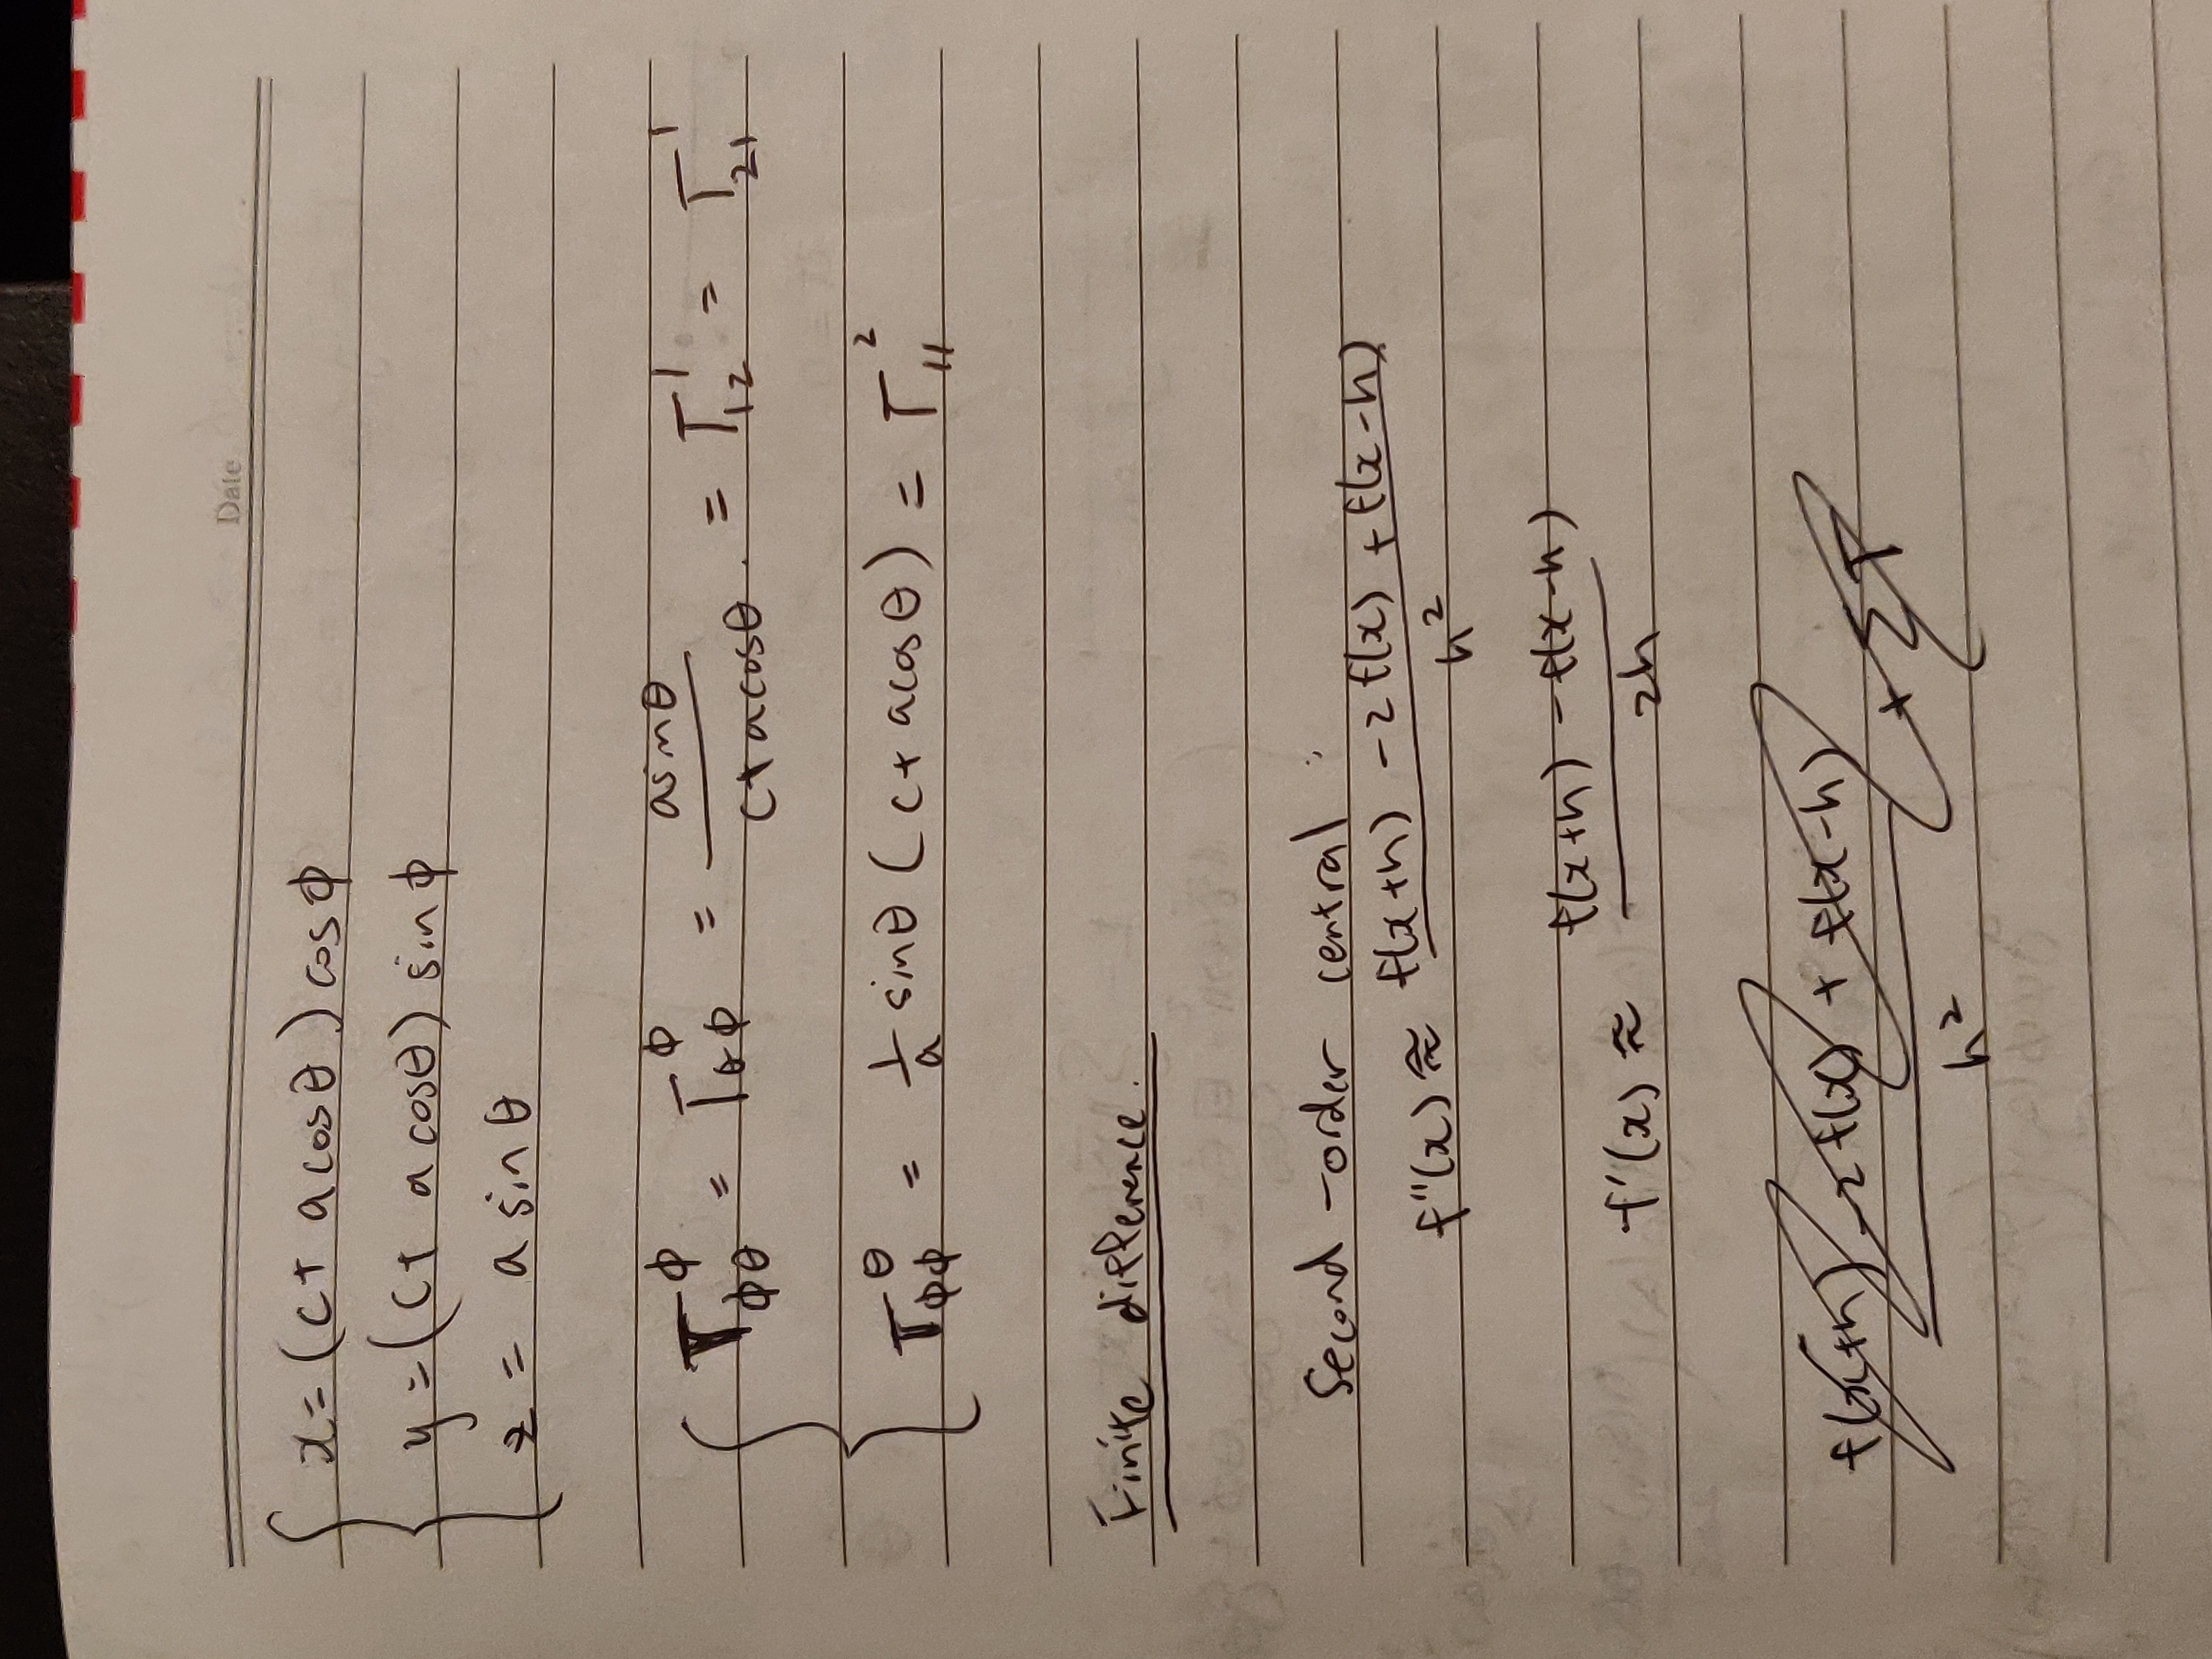 Date
x = (c + a cosθ) cos ϕ
y = (c + a cosθ) sin ϕ
z = a sin θ
Γ^ϕ_ϕθ = Γ^ϕ_θϕ = asinθ / c+acosθ. = Γ^1_12 = Γ^1_21
Γ^θ_ϕϕ = 1/a sinθ (c + acosθ) = Γ^2_11
Finite difference.
Second-order central :
f''(x) ≈ f(x+h) - 2f(x) + f(x-h) / h^2
f'(x) ≈ f(x+h) - f(x-h) / 2h
f(x+h) - 2f(x) + f(x-h) / h^2 + ΣΓ